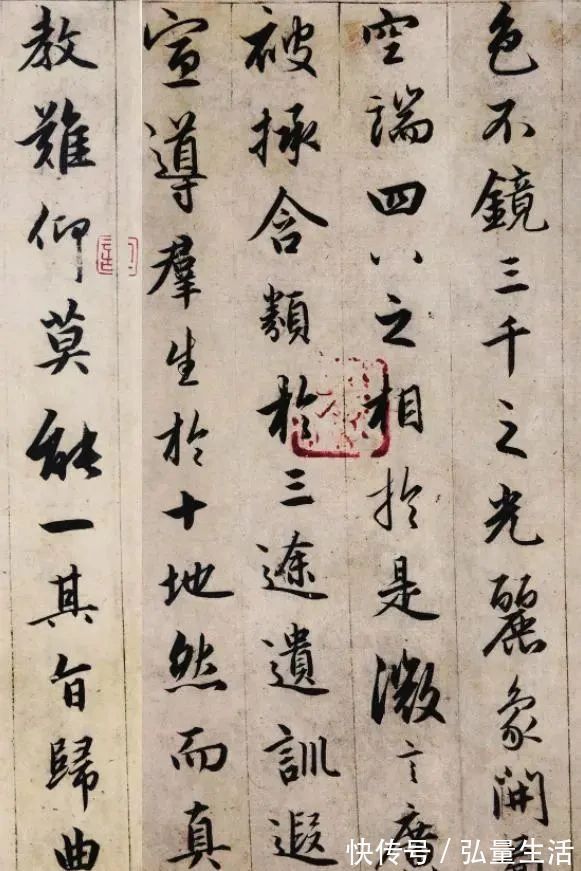 色不鏡三千之光麗象開
空端四八之相於是微言廣
被拯含類於三途遺訓遐
宣導羣生於十地然而真
教難仰莫能一其旨歸曲
快传号 / 弘量生活